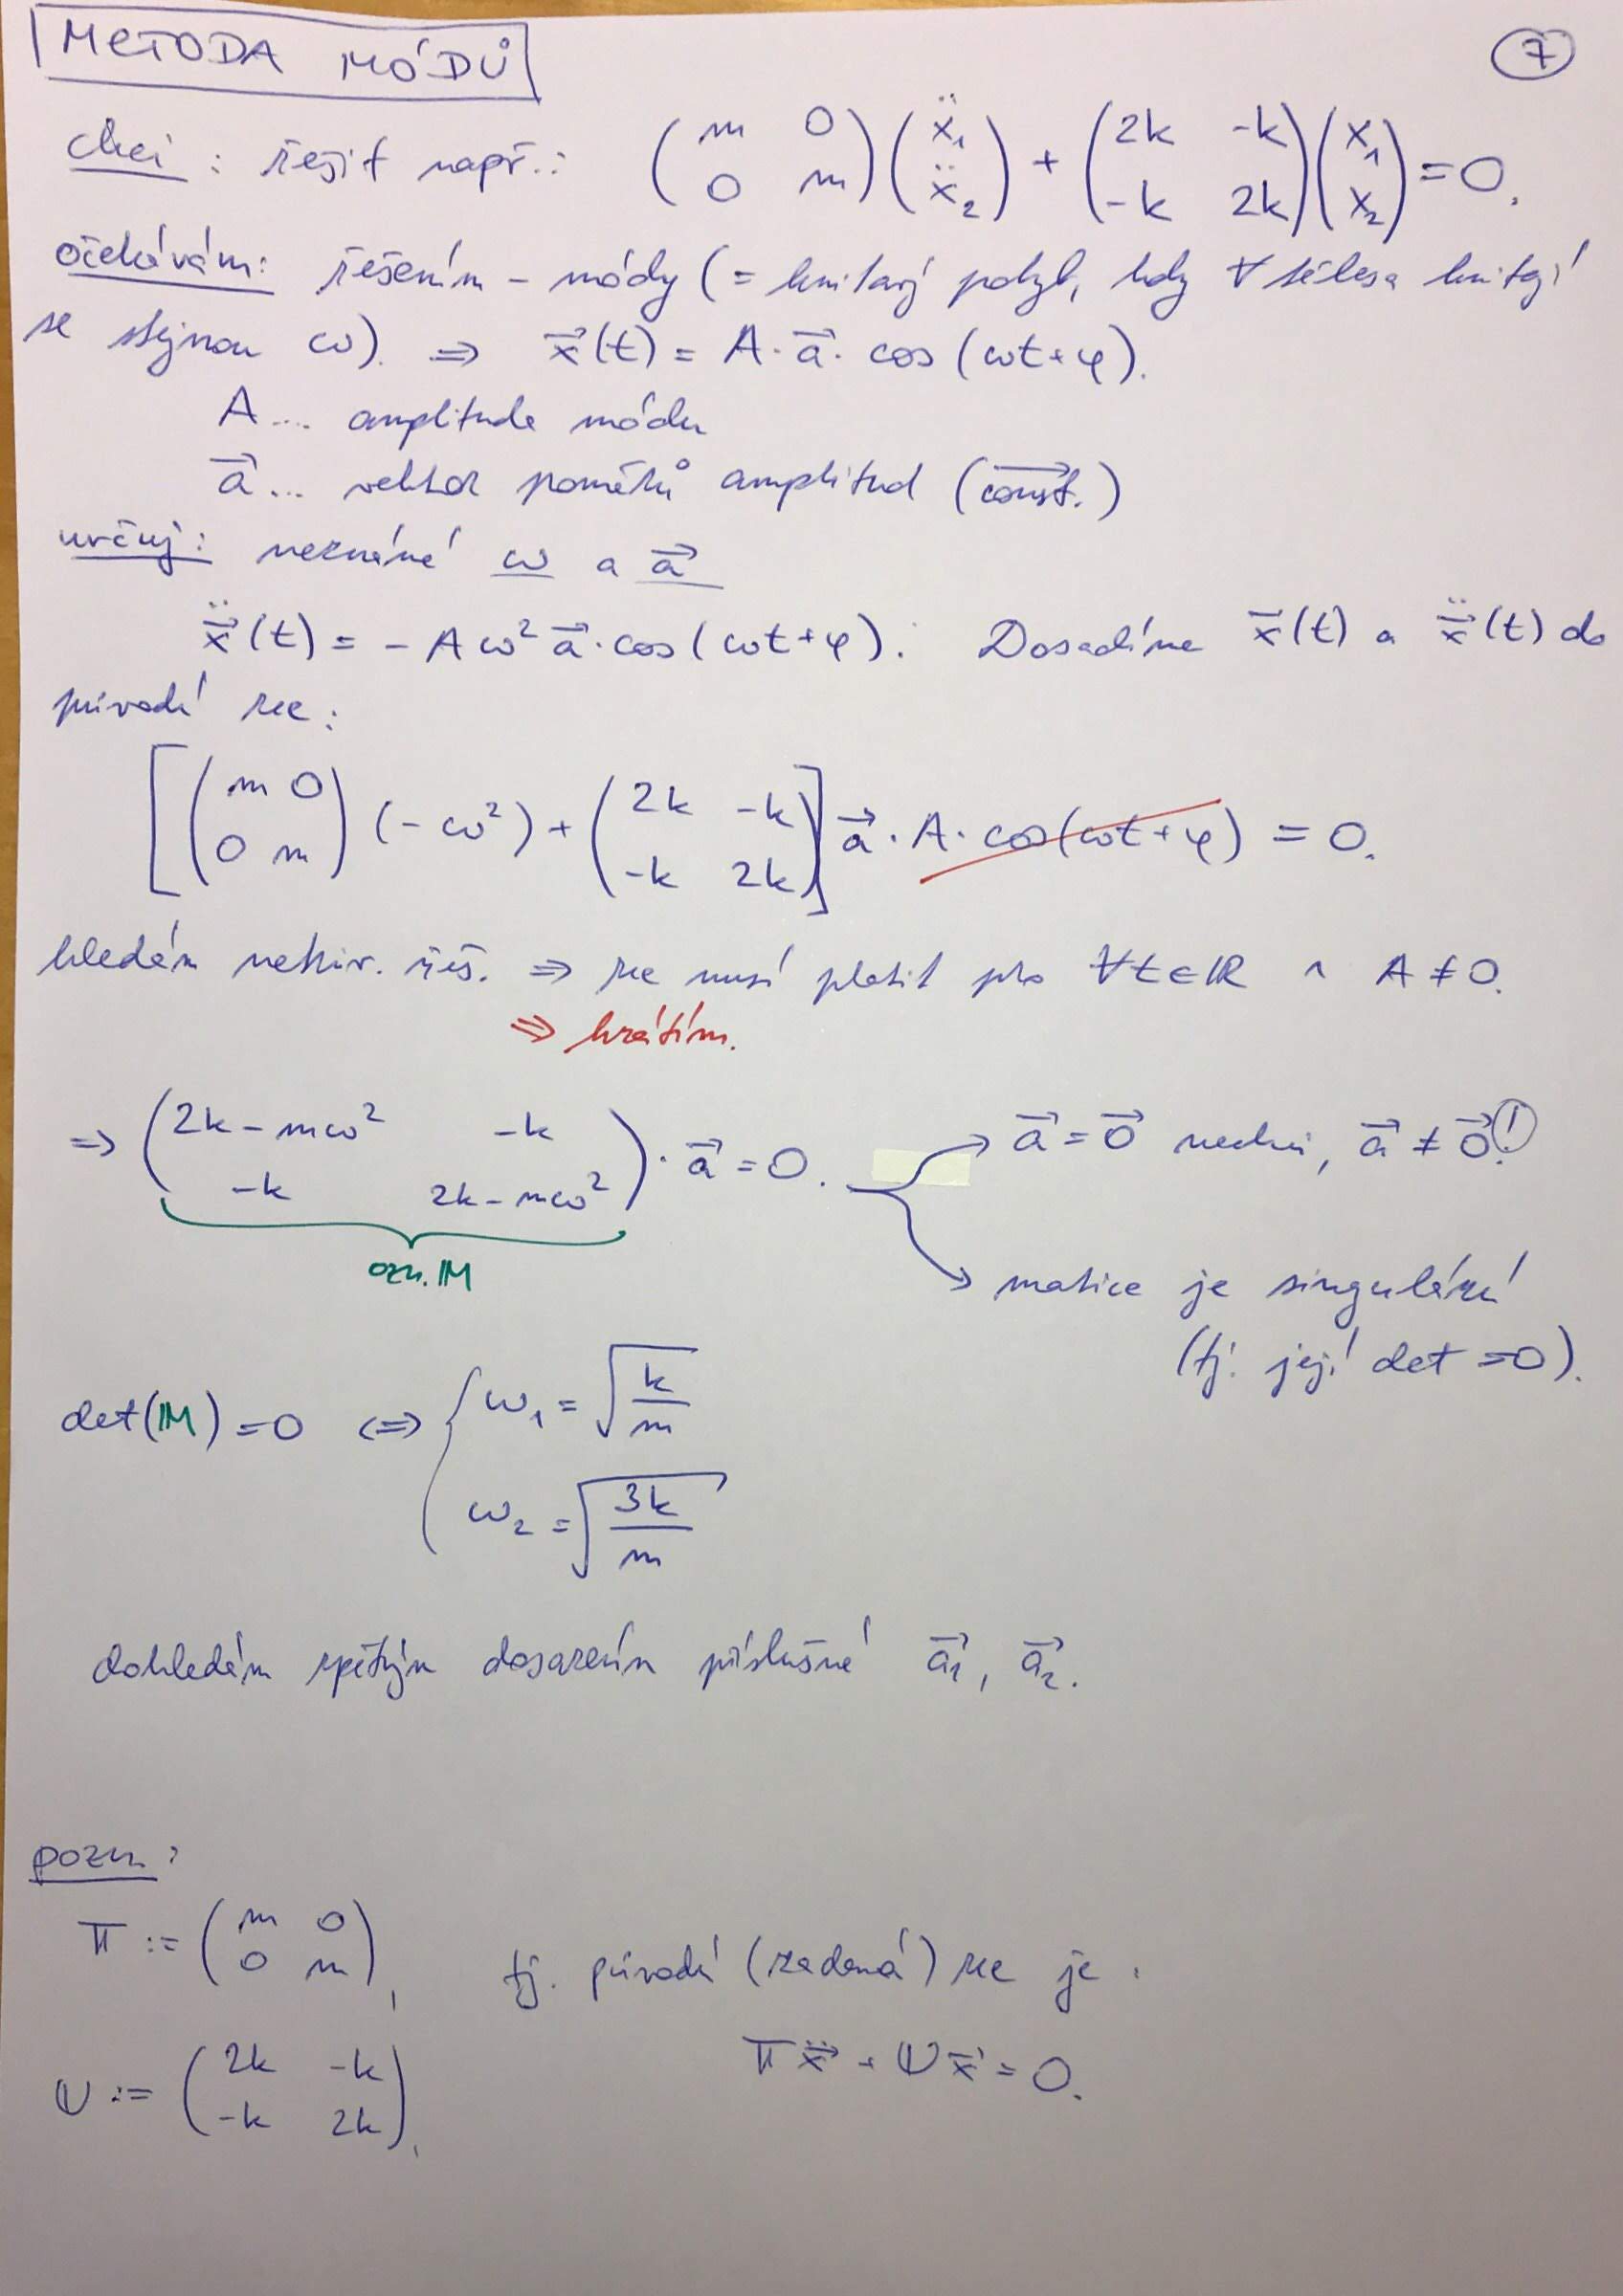 METODA MÓDŮ
7
chci: řešit např.: (m 0; 0 m)(ẍ₁; ẍ₂) + (2k -k; -k 2k)(x₁; x₂) = 0.
očekávám: řešením - módy (= kmitavý pohyb, kdy ∀ tělesa kmitají
se stejnou ω). ⇒ x⃗(t) = A·a⃗·cos(ωt+φ).
A... amplituda módu
a⃗... vektor poměrů amplitud (const.)
určuji: neznámé ω a a⃗
ẍ⃗(t) = -Aω²a⃗·cos(ωt+φ). Dosadíme x⃗(t) a ẍ⃗(t) do
původní rce:
[(m 0; 0 m)(-ω²) + (2k -k; -k 2k)] a⃗·A·cos(ωt+φ) = 0.
hledám netriv. řeš. ⇒ rce musí platit pro ∀t∈ℝ ∧ A≠0.
⇒ krátím.
⇒ (2k-mω² -k; -k 2k-mω²)·a⃗ = 0.
a⃗ = 0⃗ nechci, a⃗ ≠ 0⃗!
ozn. 𝕄
matice je singulární
(tj. její det = 0).
det(𝕄) = 0 ⇔ { ω₁ = √(k/m)
ω₂ = √(3k/m)
dohledám zpětným dosazením příslušné a⃗₁, a⃗₂.
pozn:
𝕋 := (m 0; 0 m),
tj. původní (zadaná) rce je:
𝕌 := (2k -k; -k 2k),
𝕋ẍ⃗ + 𝕌x⃗ = 0.